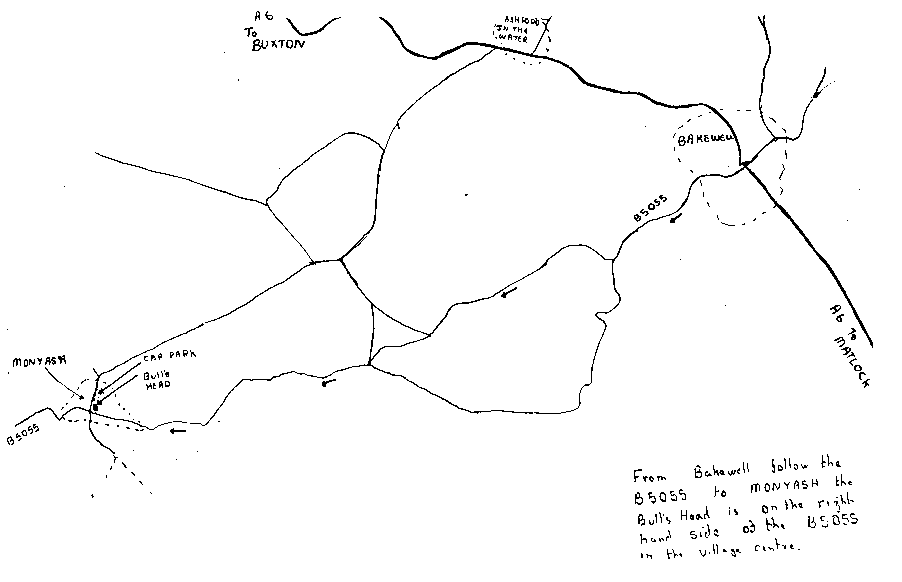 A6
To
BUXTON
ASHFORD
IN THE
WATER
BAKEWELL
B5055
A6 TO
MATLOCK
MONYASH
CAR PARK
Bull's
HEAD
B5055
From Bakewell follow the
B5055 to MONYASH the
Bull's Head is on the right
hand side of the B5055
in the village centre.